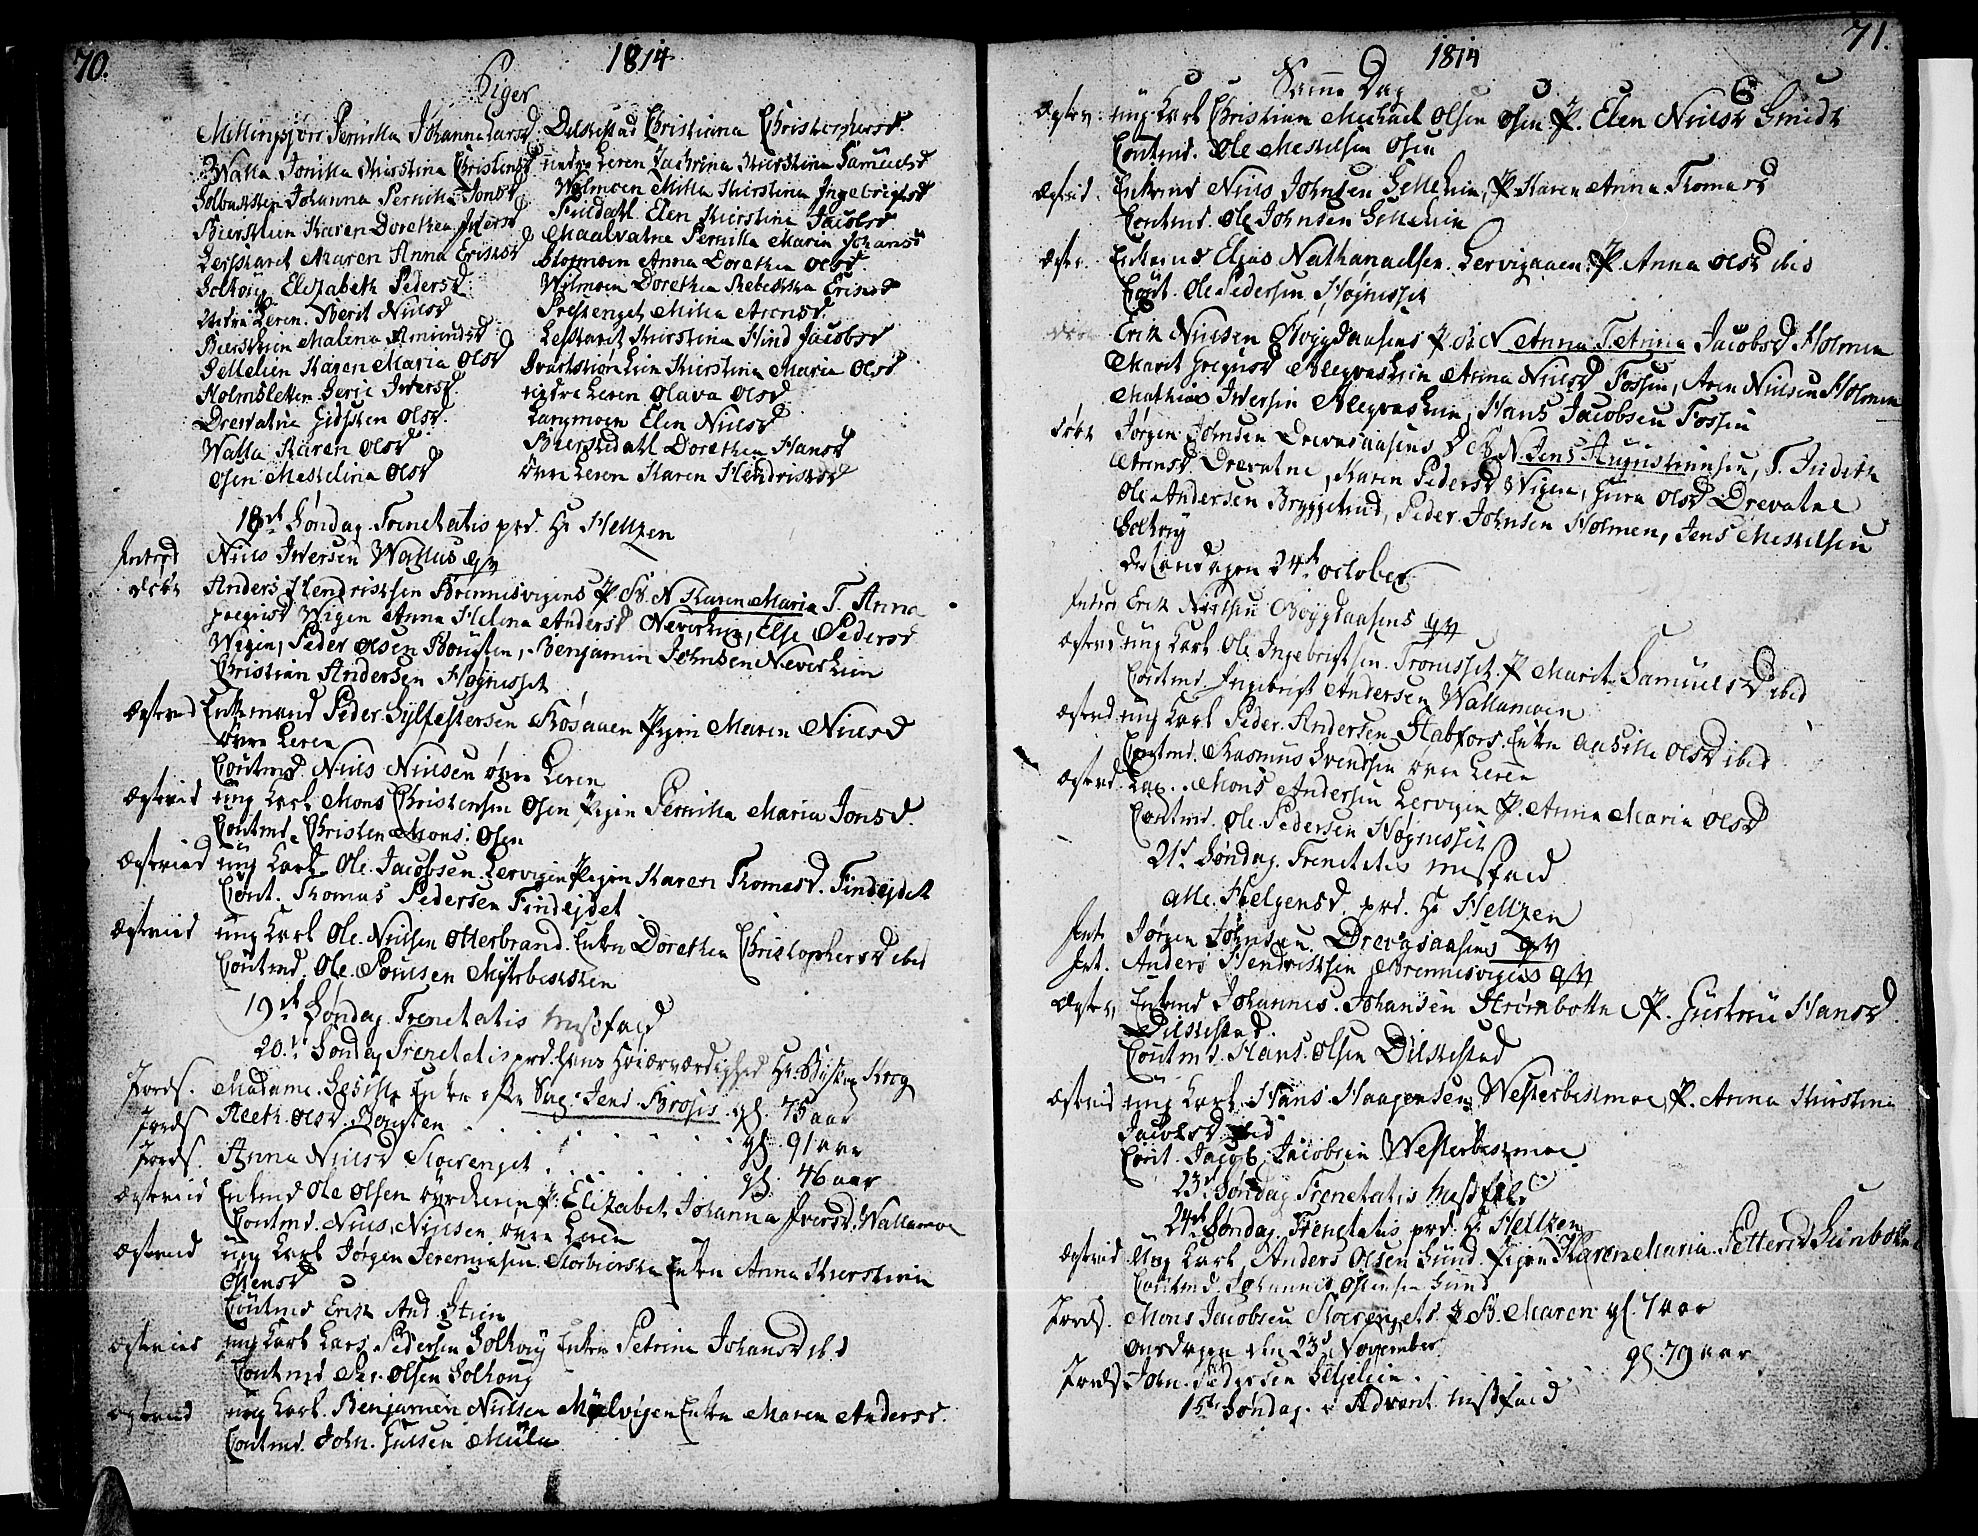 70.
1814
Piger
Mellingsjorr Pernilla Johanna Larsd.
Walla Jonilla Kirstina Christensd
Solbakken Johanna Pernilla Jonsd
Bierklien Karen Dorethea Iversd
Leifskaret Maren Anna Eriksd
Soltvig Elizabeth Pedersd
Nedre Leren Berit Nielsd
Bierklien Malena Amundsd
Sellelien Karen Maria Olsd
Holmsletten Berje Iversd.
Drevatne Gidsken Olsd.
Walla Karen Olsd
Osen Meskelina Olsd
Dilkestad Christiana Christophersd.
nedre Leren Zachrina Kirstina Samuelsd
Wilmoen Milla Kirstina Ingebrigtsd
Fieldahl Elen Kirstina Jacobsd
Maalvatne Pernilla Maria Johansd
Stormoen Anna Dorethea Olsd.
Wilmoen Dorethea Rebekka Eriksd
Prestenget Milla Arensd.
Leskaret Kirstina Hind Jacobsd
Svartskiønlien Kirstina Maria Olsd
nedre Leren Olava Olsd
Langmoen Elen Nielsd
Bierkedahl Dorethea Hansd
øvre Leren Karen Hendriksd
18de Søndag Trenetatis præd. Hr Heltzen
Introd Niels Iversen Wallas qv
Døbt Anders Hendriksen Brennesvigens P B. N Karen Maria T. Anna
Wigen Anna Helena Andersd Neverlien, Else Pedersd
Wigen, Peder Olsen Bougten, Benjamin Johnsen Neverlien
Christian Andersen Høgnesset
Ægtevied Enkemand Peder Sylfestersen Røsaaen Pigen Maren Nielsd
øvre Leren
Coutmd. Niels Nielsen øvre Leren
Ægtevied ung Karl Mons Christensen Osen Pigen Pernilla Maria Jonsd.
Coutmd. Christen Mons: Osen
Ægtevied ung Karl Ole Jacobsen Lervigen Pigen Karen Thomasd. Findejdet
Cout. Thomas Pedersen Findejdet
Ægtevied ung Karl Ole Nielsen Otterbrand. Enken Dorethea Christophersd ibid
Coutmd. Ole Pousen Mytebekken
19de Søndag Trenetatis Messefald
20de Søndag Trenetatis præd. Hans Høiærværdighed Hr Biskop Krog
Jords. Madame Enke efter Sag. Jens Brosis gl. 75 aar
Jords Aleth Olsd. Bougten gl. 91 aar
Jords. Anna Nielsd Storenget gl. 46 aar
Ægtevied Enkemd Ole Olsen øvre Leren P. Elizabet Johanna Iversd. Wallamoe
Coutmd. Niels Nielsen øvre Leren
Ægtevied ung Karl Jørgen Jeremiasen Storbierka Enken Anna Kirstina
Olensd
Coutmd Erik And. Stien
Ægtevied ung Karl Lars Pedersen Soltvig Enken Petrina Johansd ibd
Coutmd Per Olsen Soltvig
Ægtevied ung Karl Benjamin Nielsen Mølvigen Enken Maren Andersd.
Coutmd. John Julsen Mula
71.
1814
Samme Dag
Ægtev. ung Karl Christian Michael Olsen Osen P. Elen Nielsd Smidt
Coutmd. Ole Meskelsen Osen
Ægtevied Enkemd Niels Johnsen Sellelien, P Karen Anna Thomasd
Coutmd. Ole Johnsen Sellelien
Ægtv. Enkemd Elias Nathanaelsen Lervigaaen P. Anna Olsd ibid
Cout. Ole Pedersen Høgnesset
Erik Nielsen Bøygdaasens P B: N Anna T Anna Jacobsd Holmen
Marit Gregusd Alegraslien Anna Nielsd Fossen, Aren Nielsen Holmen
Mathias Iversen Alegraslien, Hans Jacobsen Fossen
Døbt Jørgen Johnsen Drevasaasens D B. N. Jens Augustinusen, T. Judith
Arensd Drevatne, Karen Pedersd Wigen, Gura Olsd Drevatne
Ole Andersen Bryggetrud, Peder Johnsen Holmen, Jens Meskelsen
Soltvig
24de October
Introd Erik Nielsen Bøygdaasens qv
Ægtevied ung Karl Ole Ingebrigtsen Tronesset P Marit Samuelsd ibid
Coutmd. Ingebrigt Andersen Wallamoen
Ægtevd ung Karl Peder Andersen Stabfors. Enken Aasille Olsd ibid
Coutmd. Rasmus Svendsen øvre Leren
Ægtevd. Lap. Mons Andersen Lervigen P. Anna Maria Olsd
Coutmd. Ole Pedersen Høgnesset
21de Søndag Trenetatis Messefald
Alle Helgensd. præd. Hr Heltzen
Int. Jørgen Johnsen Drevasaasens qv
Int. Anders Hendriksen Brennesvigens qv
Ægtev. Enkemd Johannes Johansen Strømbotn P. Gurtru Hansd
Dilkestad.
Coutmd. Hans Olsen Dilkestad
Ægtevied ung Karl Hans Haagensen Westerbekmoe P. Anna Kirstina
Jacobsd ibid
Cout. Jacob Jacobsen Westerbekmoe
23de Søndag Trenetatis Messefald
24de Søndag Trenetatis præd. Hr Heltzen
Ægtevied Ung Karl Anders Olsen Sund Pigen Karen Maria Pettersd Leirbotn
Coutmd. Johannes Olsen Sund
Jords. Mons Jacobsen Storengets P B. Maren gl. 7 aar
Onsdagen den 23d November
Jords John Pedersen Seljelien gl. 79 aar
1ste Søndag i Advent Messefald